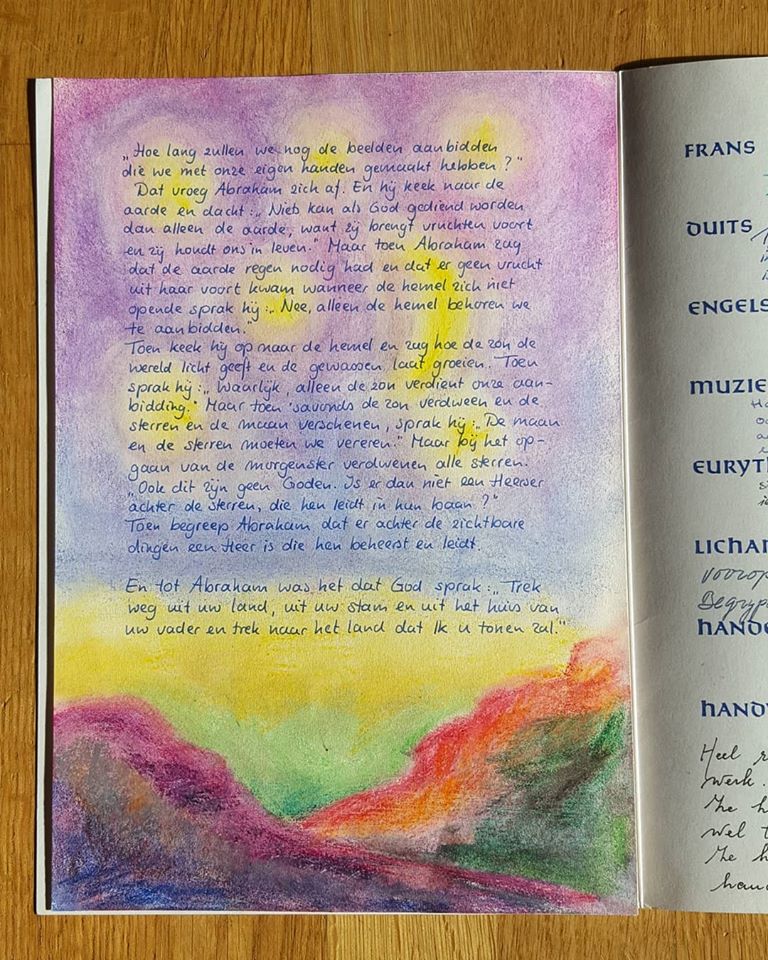 „Hoe lang zullen we nog de beelden aanbidden
die we met onze eigen handen gemaakt hebben?"
Dat vroeg Abraham zich af. En hij keek naar de
aarde en dacht:„ Niets kan als God gediend worden
dan alleen de aarde, want zij brengt vruchten voort
en zij houdt ons in leven." Maar toen Abraham zag
dat de aarde regen nodig had en dat er geen vrucht
uit haar voort kwam wanneer de hemel zich niet
opende sprak hij:„ Nee, alleen de hemel behoren we
te aanbidden."
Toen keek hij op naar de hemel en zag hoe de zon de
wereld licht geeft en de gewassen laat groeien. Toen
sprak hij:„ Waarlijk, alleen de zon verdient onze aan-
bidding." Maar toen 'savonds de zon verdween en de
sterren en de maan verschenen, sprak hij:„ De maan
en de sterren moeten we vereren." Maar bij het op-
gaan van de morgenster verdwenen alle sterren.
„Ook dit zijn geen Goden. Is er dan niet een Heerser
achter de sterren, die hen leidt in hun baan?"
Toen begreep Abraham dat er achter de zichtbare
dingen een Heer is die hen beheerst en leidt.
En tot Abraham was het dat God sprak:„ Trek
weg uit uw land, uit uw stam en uit het huis van
uw vader en trek naar het land dat Ik u tonen zal."
FRANS
DUITS
ENGELS
MUZIE
EURYTH
LICHAM
voorop
Begryp
HANDE
HANDV
Heel
werk.
Ze h
wel t
Ze h
hand